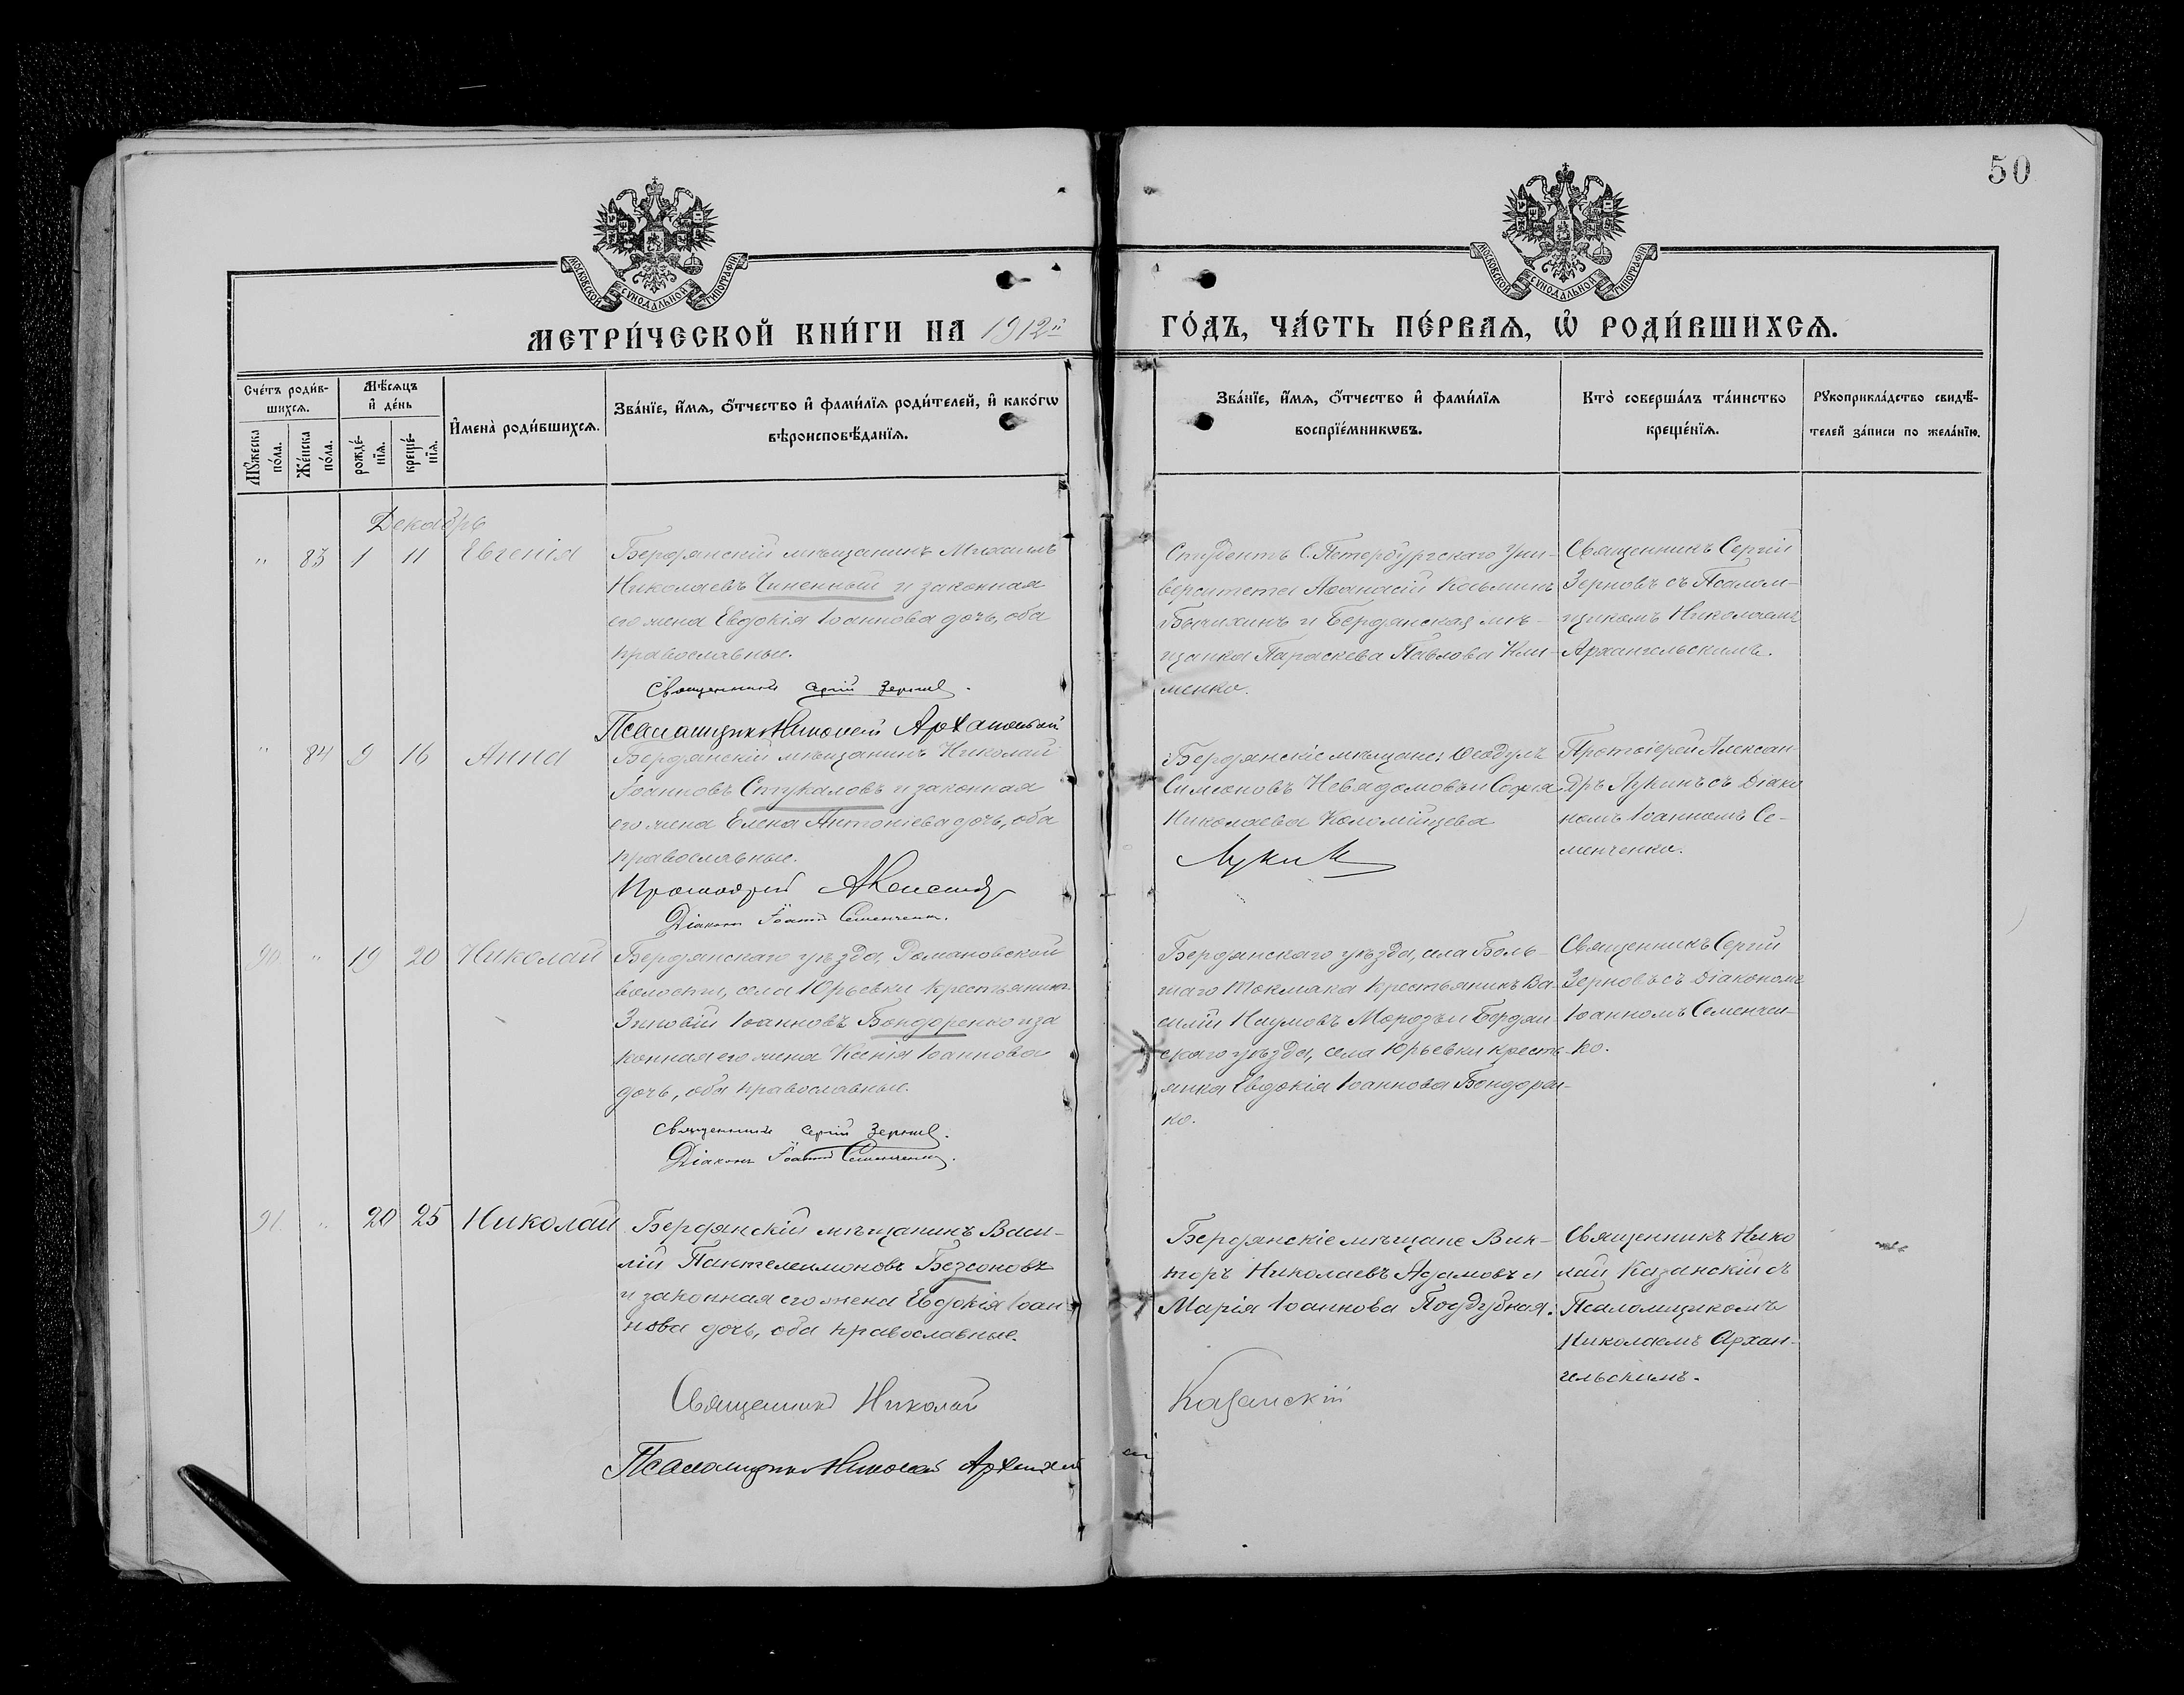 50
МОСКОВСКОЙ СѴНОДАЛЬНОЙ ТИПОГРАФІИ
МОСКОВСКОЙ СѴНОДАЛЬНОЙ ТИПОГРАФІИ
МЕТРИ́ЧЕСКОЙ КНИ́ГИ НА 1912й
ГО́ДЪ, ЧА́СТЬ ПЕ́РВАѦ, Ѡ҆ РОДИ́ВШИХСѦ.
Сче́тъ роди́в-
шихсѧ.
Мѣ́сѧцъ
и҆ де́нь
Мꙋ́жеска
по́ла.
Же́нска
по́ла.
рожде́-
нїѧ.
креще́-
нїѧ.
И҆мена̀ роди́вшихсѧ.
Зва́нїе, и҆́мѧ, о҆́тчество и҆ фами́лїѧ роди́телей, и҆ како́гѡ
вѣроисповѣ́данїѧ.
Зва́нїе, и҆́мѧ, о҆́тчество и҆ фами́лїѧ
воспрїе́мникѡвъ.
Кто̀ соверша́лъ та́инство
креще́нїѧ.
Рꙋкоприкла́дство свидѣ́-
телей за́писи по жела́нїю.
Декабрь
" 83 1 11 Евгенія
Бердянскій мѣщанинъ Михаилъ
Николаевъ Чиненный и законная
его жена Евдокія Іоаннова дочь, оба
православные.
Священникъ Сергій Зерновъ.
Псаломщикъ Николай Архангельскій
Студентъ С.Петербургскаго Уни-
верситета Аѳанасій Косьминъ
Бычихинъ и Бердянская мѣ-
щанка Параскева Павлова Кли-
менко.
Священникъ Сергій
Зерновъ съ Псалом-
щикомъ Николаемъ
Архангельскимъ.
" 84 9 16 Анна
Бердянскій мѣщанинъ Николай
Іоанновъ Стукаловъ и законная
его жена Елена Антоніева дочь, оба
православные.
Протоіерей Александръ
Діаконъ Іоаннъ Семенченко.
Бердянскіе мѣщане: Ѳеодулъ
Симеоновъ Невядомовъ и Софія
Николаева Коломійцева
Лукинъ
Протоіерей Алексан-
дръ Лукинъ съ Діако
номъ Іоанномъ Се-
менченко.
90 " 19 20 Николай
Бердянскаго уѣзда, Романовской
волости, села Юрьевки крестьянинъ
Зиновій Іоанновъ Бондоренко и за
конная его жена Ксенія Іоаннова
дочь, оба православные.
Священникъ Сергій Зерновъ.
Діаконъ Іоаннъ Семенченко.
Бердянскаго уѣзда, села Боль-
шаго Токмака крестьянинъ Ва-
силій Наумовъ Морозъ и Бердян-
скаго уѣзда, села Юрьевки кресть-
янка Евдокія Іоаннова Бондорен-
ко.
Священникъ Сергій
Зерновъ съ Діакономъ
Іоанномъ Семенчен-
ко.
91. " 20 25 Николай
Бердянскій мѣщанинъ Васи-
лій Пантелеимоновъ Безсоновъ
и законная его жена Евдокія Іоан-
нова дочь, оба православные.
Священникъ Николай
Псаломщикъ Николай Архангельскій
Бердянскіе мѣщане Вик-
торъ Николаевъ Адамовъ и
Марія Іоаннова Поддубная.
Казанскій
Священникъ Нико
лай Казанскій съ
Псаломщикомъ
Николаемъ Архан-
гельскимъ.